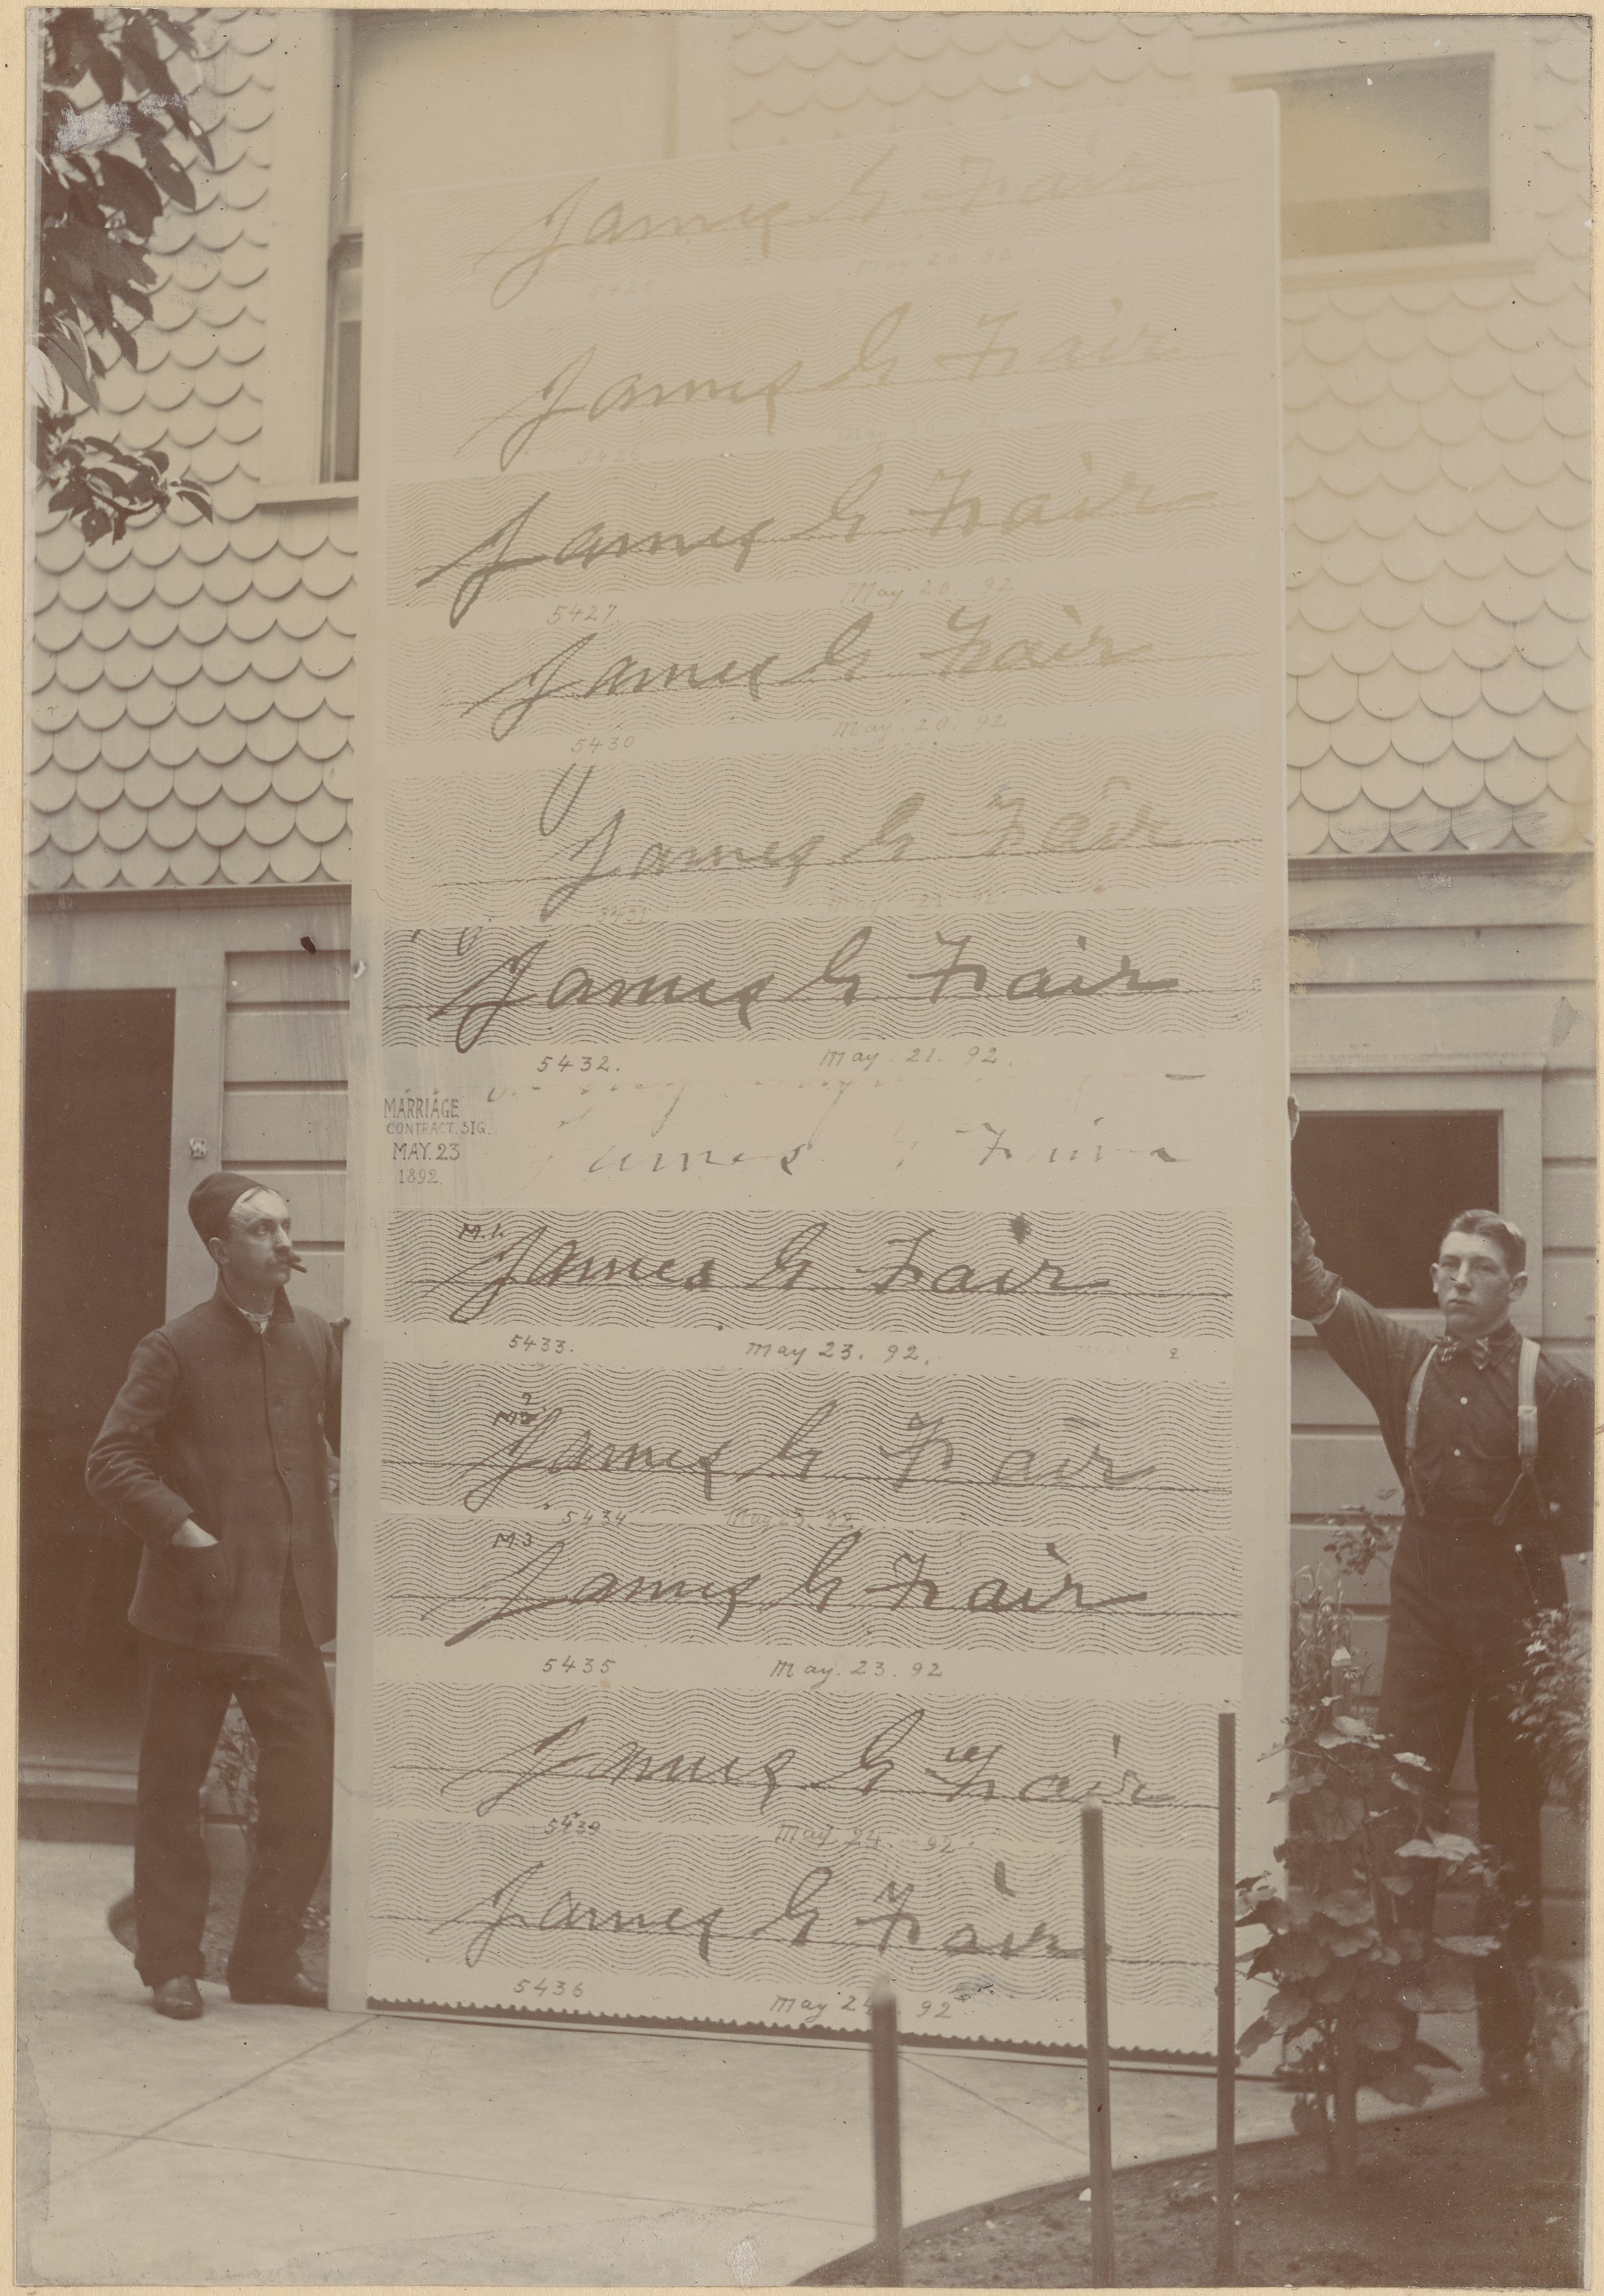 James G Fair
May 20. 92
James G Fair
James G Fair
5427. May 20. 92
James G Fair
5430 May. 20. 92
James G Fair
5431 May 21 92
James G Fair
5432. May. 21. 92.
MARRIAGE
CONTRACT. SIG.
MAY. 23
1892.
James Fair
M.1. James G Fair
5433. May 23. 92.
M2 James G Fair
5434 May 23. 92
M.3 James G Fair
5435 May. 23. 92
James G Fair
5439 May 24. 92.
James G Fair
5436 May 24. 92